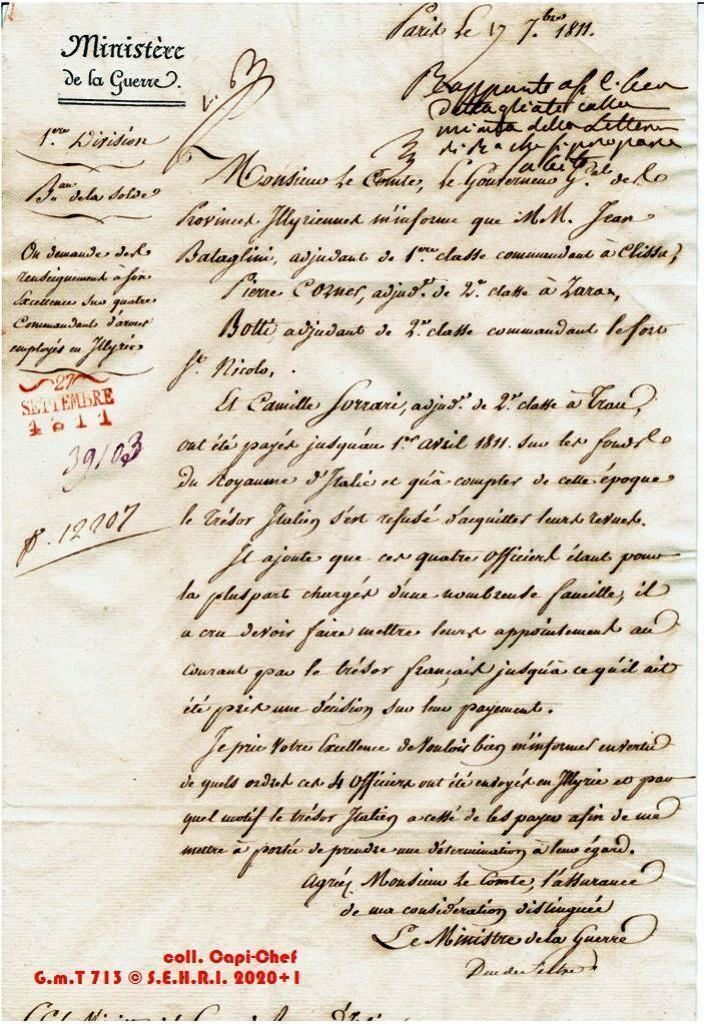 Paris Le 17 7.bre 1811.
Ministère
de la Guerre.
1.ere Division
B.au de la Solde
On demande des
renseignements à son
Excellence sur quatre
Commandants d'armes
employés en Illyrie
27
SETTEMBRE
1811
39103
12207
della Lettera
Monsieur Le Comte, Le Gouverneur G.ral des
Provinces Illyriennes m'informe que M.M. Jean
Bataglini, adjudant de 1.ere classe commandant à Clissa,
Pierre Corner, adjud.t de 2.e classe à Zara,
Botti adjudant de 2.e classe commandant le fort
S.t Nicolo,
Et Camille Sorrari, adjud.t de 2.e classe à Trau,
ont été payés jusqu'au 1.er avril 1811 sur les fonds
du Royaume d'Italie et qu'à compter de cette époque
le Trésor Italien s'est refusé d'acquitter leurs revues.
Il ajoute que ces quatre Officiers étant pour
la pluspart chargés d'une nombreuse famille, il
a cru devoir faire mettre leurs appointement au
courant par le trésor français jusqu'à ce qu'il ait
été pris une décision sur leur payement.
Je prie Votre Excellence de vouloir bien m'informer en vertu
de quels ordres ces 4 Officiers ont été envoyés en Illyrie et par
quel motif le trésor Italien a cessé de les payer afin de me
mettre à portée de prendre une détermination à leur égard.
Agréez Monsieur Le Comte, l'assurance
de ma considération distinguée
Le Ministre de la Guerre
Duc de Feltre
coll. Capi-Chef
G.m.T 713 © S.E.H.R.I. 2020+1